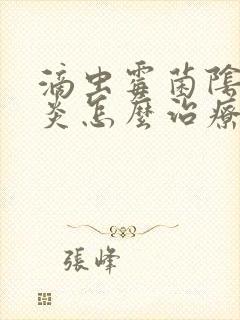 滴虫霉菌陰
炎怎麼治療
張峰